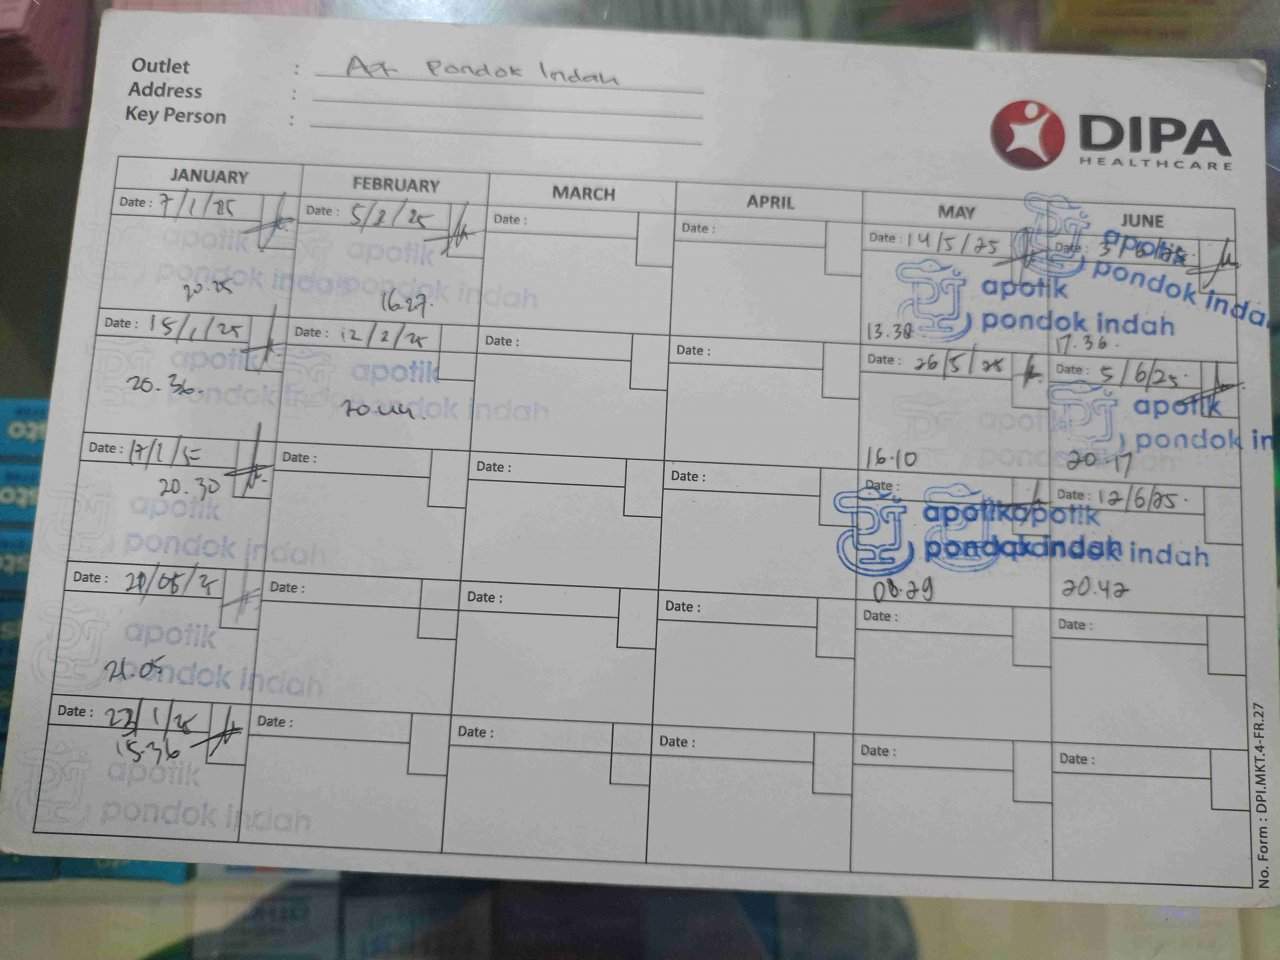 Outlet : Apt Pondok Indah
Address :
Key Person :
DIPA
HEALTHCARE
JANUARY FEBRUARY MARCH APRIL MAY JUNE
Date : 7/1/25 Date : 5/2/25 Date : Date : Date : 14/5/25 Date : 3/6/25
apotik apotik apotik apotik
pondok indah pondok indah pondok indah pondok indah
20.25 16.27. 13.38 17.36.
Date : 15/1/25 Date : 12/2/25 Date : Date : Date : 26/5/25 Date : 5/6/25
apotik apotik apotik
pondok indah pondok indah pondok indah
20.36. 20.44. 16.10 20.17
Date : 17/1/25 Date : Date : Date : Date : Date : 12/6/25.
20.30
apotik apotik apotik
pondok indah pondok indah pondok indah
08.29 20.42
Date : Date : Date : Date : Date : Date :
apotik
pondok indah
21.05
Date : 22/1/25 Date : Date : Date : Date : Date :
15.36
apotik
pondok indah
No. Form : DPI.MKT.4-FR.27